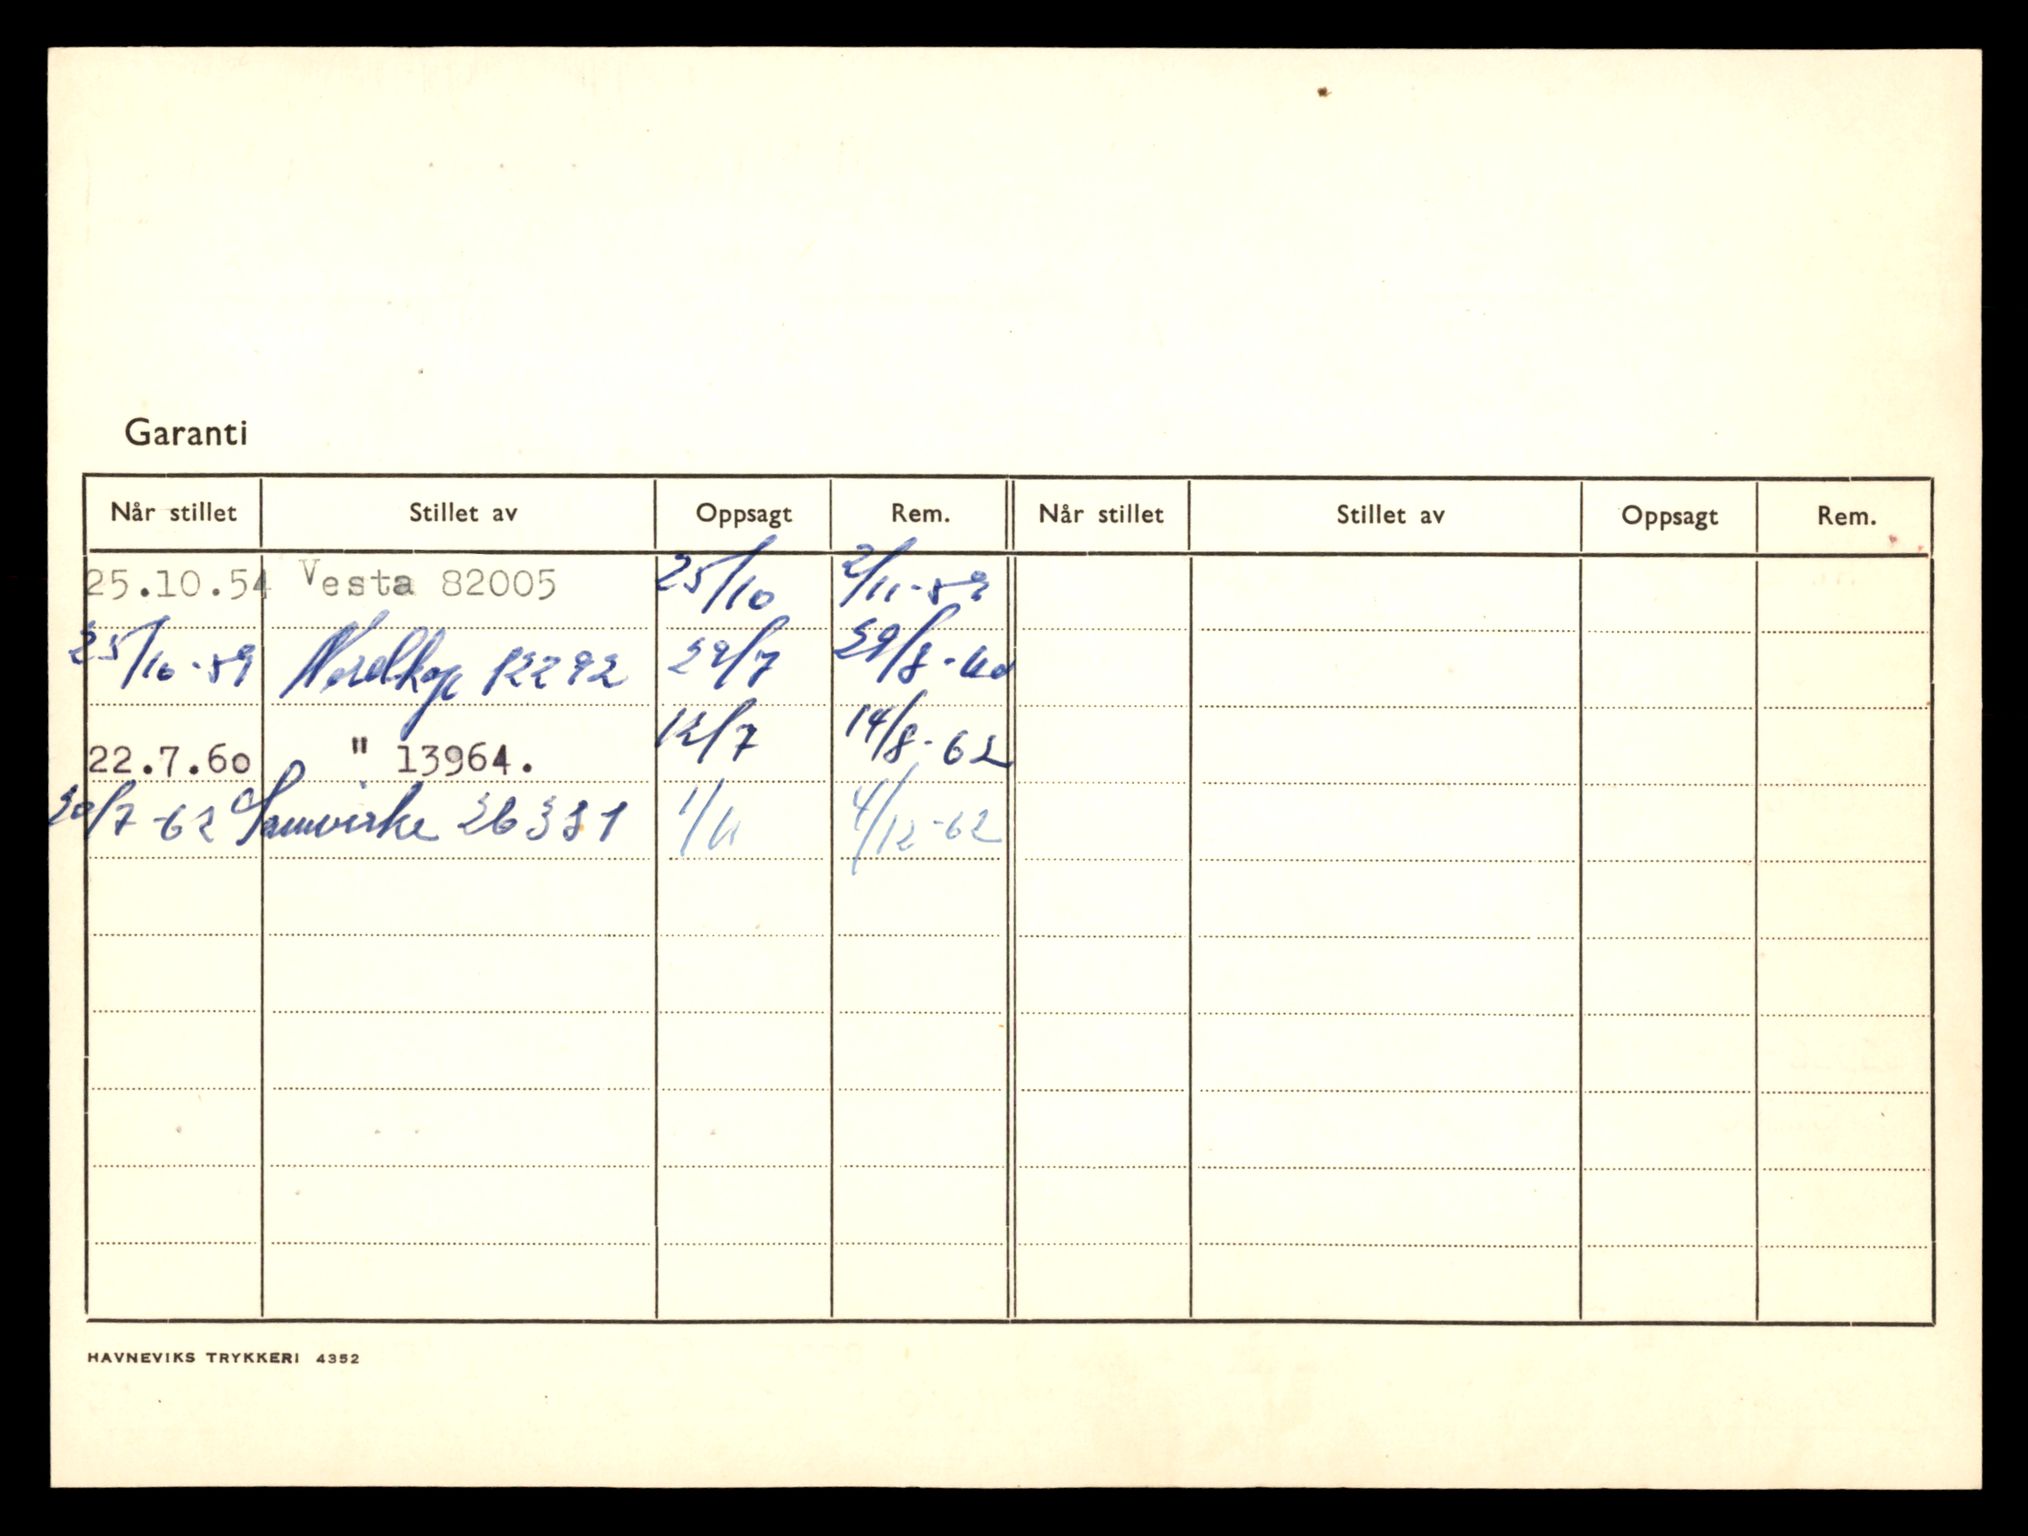 Garanti
Når stillet Stillet av Oppsagt Rem. Når stillet Stillet av Oppsagt Rem.
25.10.54 Vesta 82005 25/10 2/11-59
25/10-59 12292 29/7 29/8-60
22.7.60 " 13964. 12/7 14/8-62
20/7-62 Samvirke 26381 1/11 4/12-62
HAVNEVIKS TRYKKERI 4352